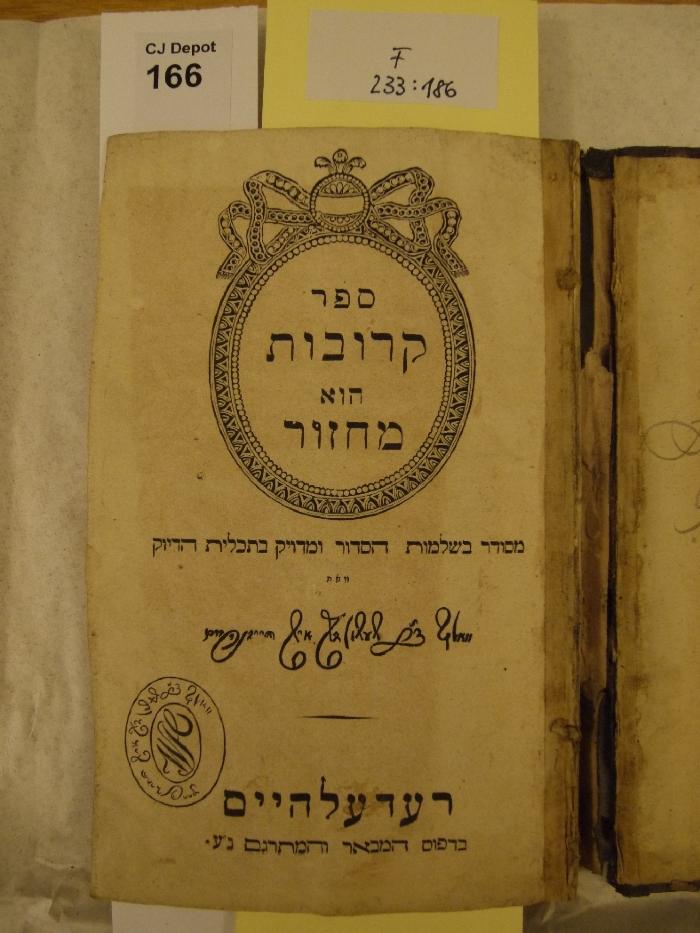 CJ Depot
166
F
233:186
ספר
קרובות
הוא
מחזור
מסודר בשלמות הסדור ומדויק בתכלית הדיוק
מאת
וואלף
היידנהיים
רעדעלהיים
בדפוס המבאר והמתרגם נ״ע.